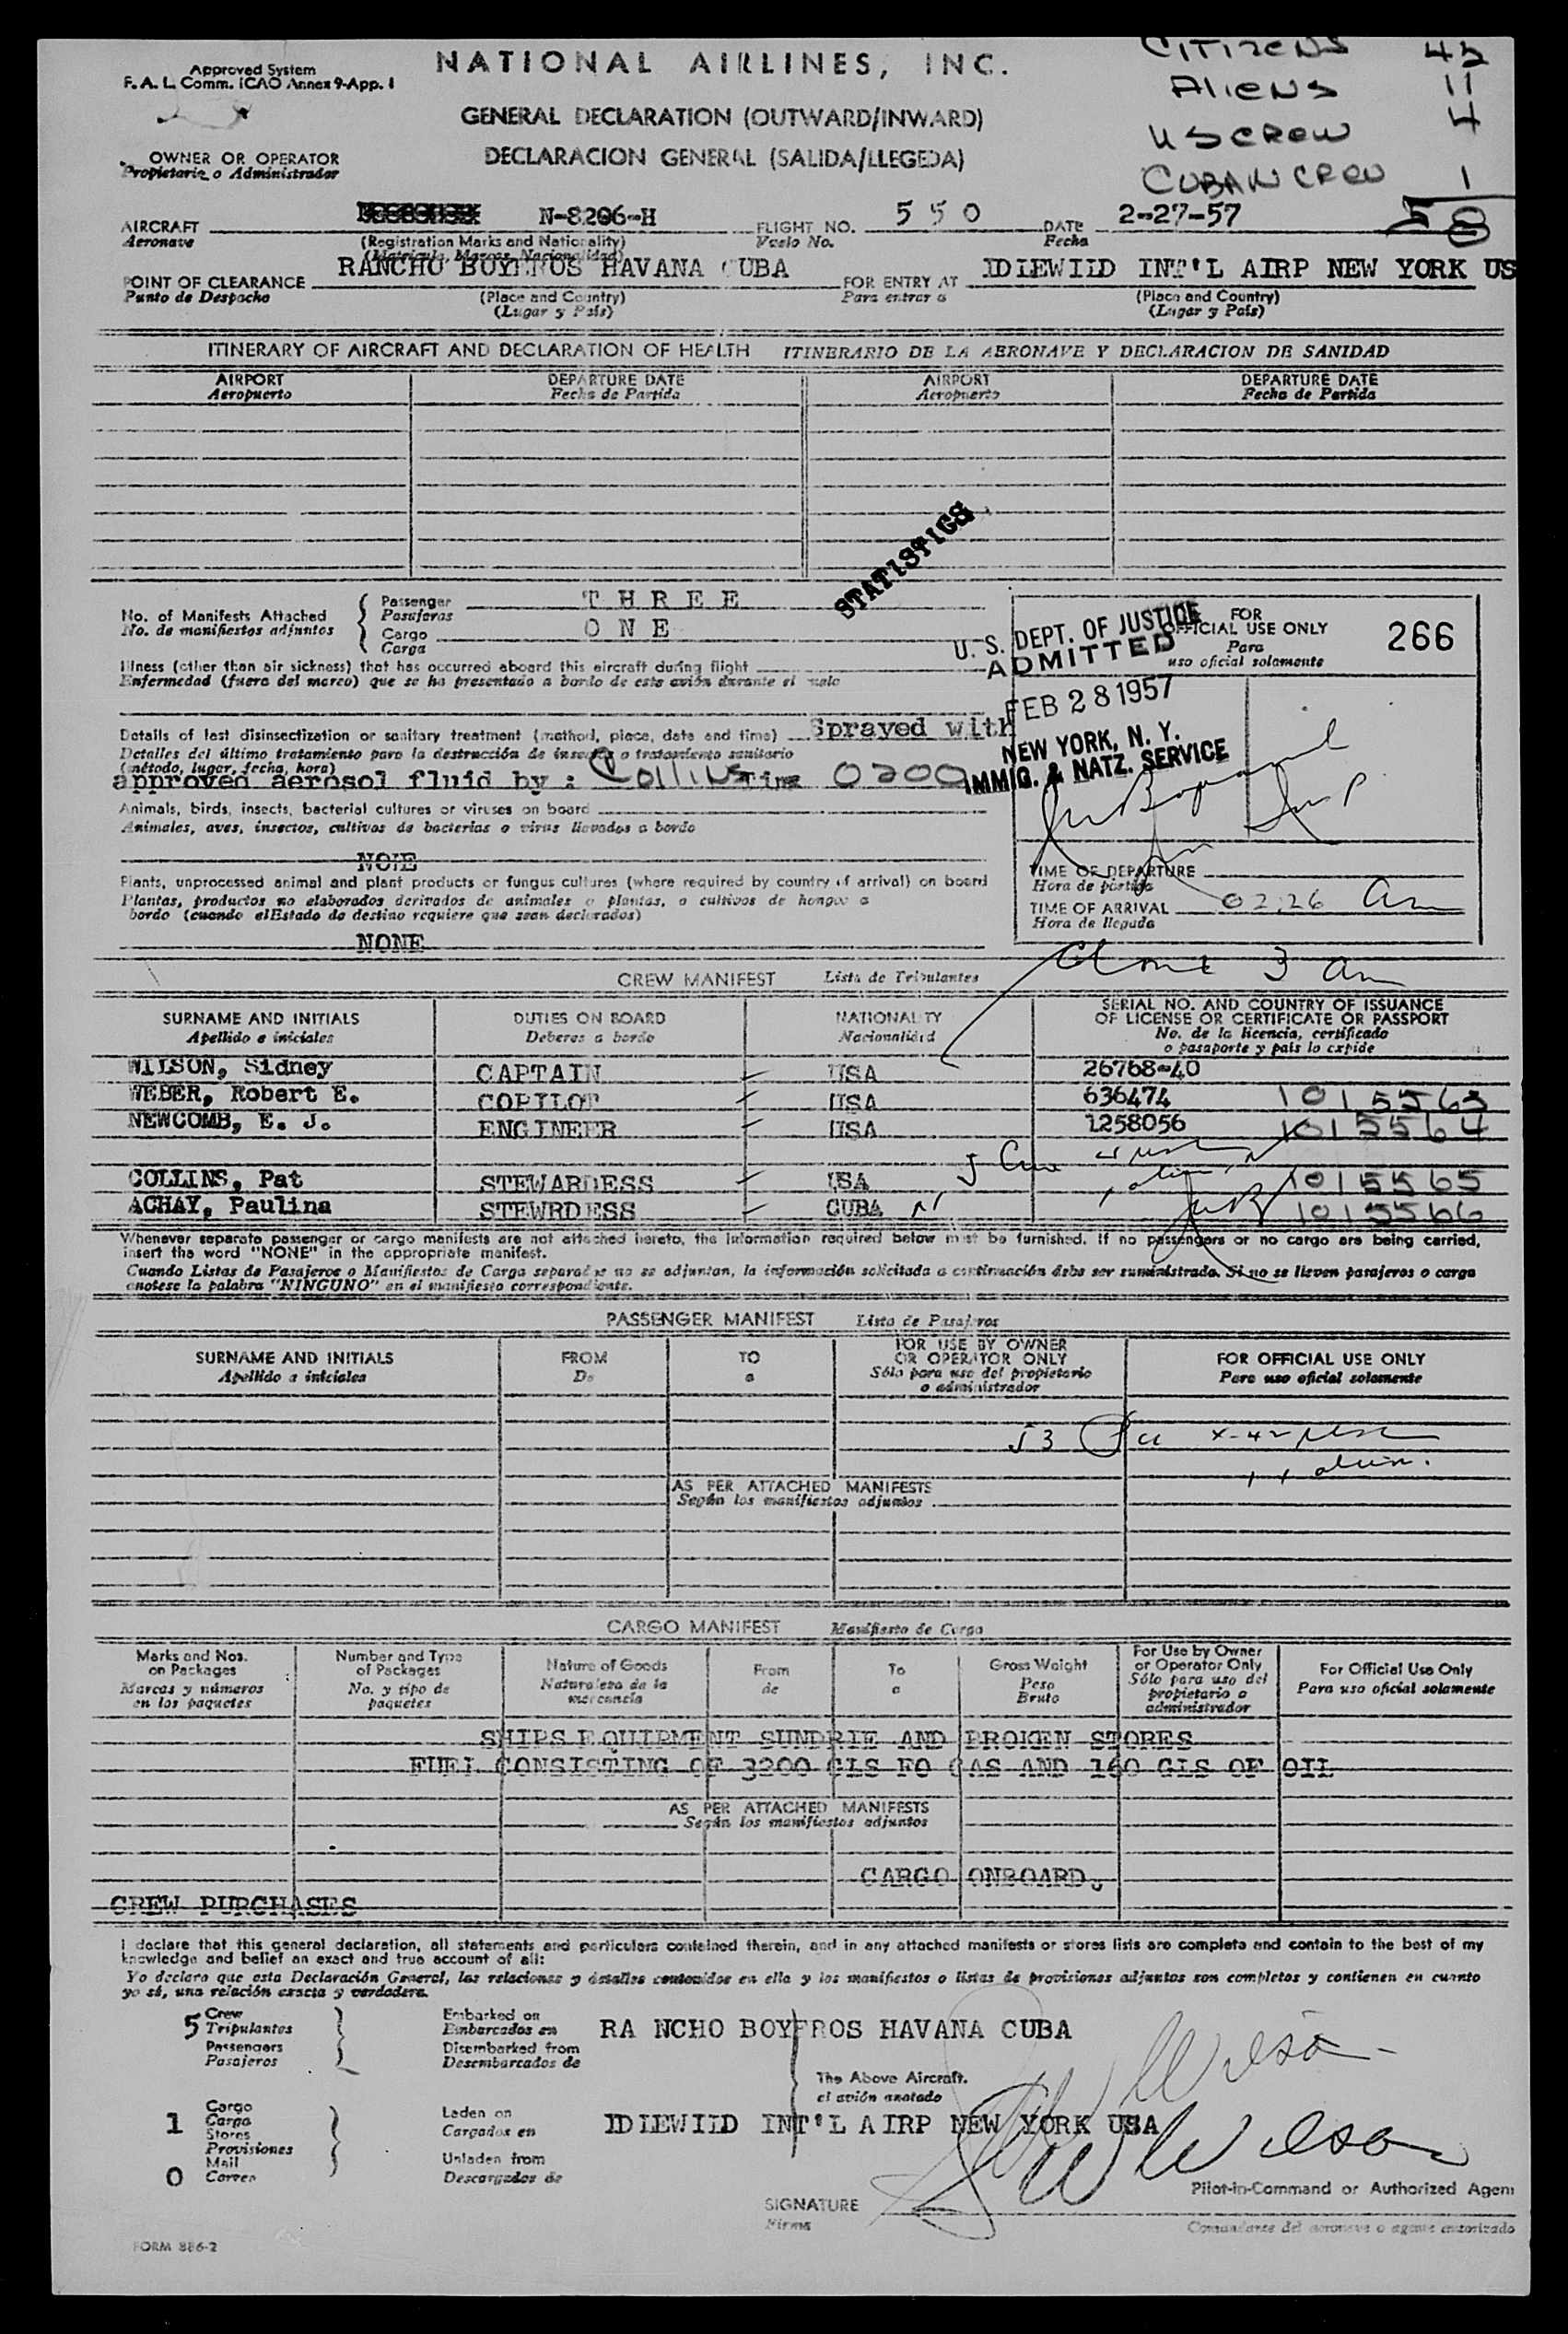 Approved System
F. A. L. Comm. ICAO Annex 9-App. 1
NATIONAL AIRLINES, INC.
GENERAL DECLARATION (OUTWARD/INWARD)
DECLARACION GENERAL (SALIDA/LLEGEDA)
CITIZENS 42
ALIENS 11
US CREW 4
CUBAN CREW 1
58
OWNER OR OPERATOR
Propietario o Administrador
AIRCRAFT N-8206-H FLIGHT NO. 550 DATE 2-27-57
Aeronave (Registration Marks and Nationality) Vuelo No. Fecha
(Matricula, Marcas, Nacionalidad)
POINT OF CLEARANCE RANCHO BOYEROS HAVANA CUBA FOR ENTRY AT IDIEWIID INT'L AIRP NEW YORK US
Punto de Despacho (Place and Country) Para entrar a (Place and Country)
(Lugar y País) (Lugar y País)
ITINERARY OF AIRCRAFT AND DECLARATION OF HEALTH ITINERARIO DE LA AERONAVE Y DECLARACION DE SANIDAD
AIRPORT DEPARTURE DATE AIRPORT DEPARTURE DATE
Aeropuerto Fecha de Partida Aeropuerto Fecha de Partida
STATISTICS
No. of Manifests Attached Passenger THREE
No. de manifiestos adjuntos Pasajeros
Cargo ONE
Carga
U. S. DEPT. OF JUSTICE
ADMITTED
FEB 28 1957
NEW YORK, N. Y.
IMMIG. & NATZ. SERVICE
FOR
OFFICIAL USE ONLY 266
Para
uso oficial solamente
Illness (other than air sickness) that has occurred aboard this aircraft during flight
Enfermedad (fuera del mareo) que se ha presentado a bordo de este avión durante el vuelo
Details of last disinsectization or sanitary treatment (method, place, date and time) Sprayed with
Detalles del último tratamiento para la destrucción de insectos o tratamiento sanitario
(método, lugar, fecha, hora)
approved aerosol fluid by: Collins Time 0200
Animals, birds, insects, bacterial cultures or viruses on board
Animales, aves, insectos, cultivos de bacterias o virus llevados a bordo
NONE
Plants, unprocessed animal and plant products or fungus cultures (where required by country of arrival) on board
Plantas, productos no elaborados derivados de animales o plantas, o cultivos de hongos a
bordo (cuando elEstado de destino requiere que sean declarados)
NONE
TIME OF DEPARTURE
Hora de partida
TIME OF ARRIVAL 02:26 am
Hora de llegada
3 am
CREW MANIFEST Lista de Tripulantes
SURNAME AND INITIALS DUTIES ON BOARD NATIONALITY SERIAL NO. AND COUNTRY OF ISSUANCE
OF LICENSE OR CERTIFICATE OR PASSPORT
Apellido e iniciales Deberes a bordo Nacionalidad No. de la licencia, certificado
o pasaporte y país lo expide
WILSON, Sidney CAPTAIN USA 26768-40
WEBER, Robert E. COPILOT USA 636474 1015563
NEWCOMB, E. J. ENGINEER USA 1258056 1015564
COLLINS, Pat STEWARDESS USA 1015565
ACHAY, Paulina STEWRDESS CUBA 1015566
Whenever separate passenger or cargo manifests are not attached hereto, the information required below must be furnished. If no passengers or no cargo are being carried,
insert the word "NONE" in the appropriate manifest.
Cuando Listas de Pasajeros o Manifiestos de Carga separados no se adjuntan, la información solicitada a continuación debe ser suministrada. Si no se lleven pasajeros o carga
anotese la palabra "NINGUNO" en el manifiesto correspondiente.
PASSENGER MANIFEST Lista de Pasajeros
SURNAME AND INITIALS FROM TO FOR USE BY OWNER
OR OPERATOR ONLY FOR OFFICIAL USE ONLY
Apellido a iniciales De a Sólo para uso del propietario
o administrador Para uso oficial solamente
53
AS PER ATTACHED MANIFESTS
Según los manifiestos adjuntos
CARGO MANIFEST Manifiesto de Carga
Marks and Nos.
on Packages
Marcas y números
en los paquetes
Number and Type
of Packages
No. y tipo de
paquetes
Nature of Goods
Naturaleza de la
mercancia
From
de
To
a
Gross Weight
Peso
Bruto
For Use by Owner
or Operator Only
Sólo para uso del
propietario o
administrador
For Official Use Only
Para uso oficial solamente
SHIPS EQUIPMENT SUNDRIE AND BROKEN STORES
FUEL CONSISTING OF 3200 GLS FO GAS AND 160 GLS OF OIL
AS PER ATTACHED MANIFESTS
Según los manifiestos adjuntos
CARGO ONBOARD.
CREW PURCHASES
I declare that this general declaration, all statements and particulars contained therein, and in any attached manifests or stores lists are complete and contain to the best of my
knowledge and belief an exact and true account of all:
Yo declaro que esta Declaración General, las relaciones y detalles contenidos en ella y los manifiestos o listas de provisiones adjuntos son completos y contienen en cuanto
yo sé, una relación exacta y verdadera.
5 Crew
Tripulantes
Passengers
Pasajeros
Embarked on
Embarcados en
Disembarked from
Desembarcados de
RA NCHO BOYEROS HAVANA CUBA
The Above Aircraft.
el avión anotado
1 Cargo
Carga
Stores
Provisiones
Mail
0 Correo
Laden on
Cargados en
Unladen from
Descargados de
IDIEWIID INT'L AIRP NEW YORK USA
Wilson
Wilson
SIGNATURE
Firma
Pilot-in-Command or Authorized Agent
Comandante del aeronave o agente autorizado
FORM 886-2